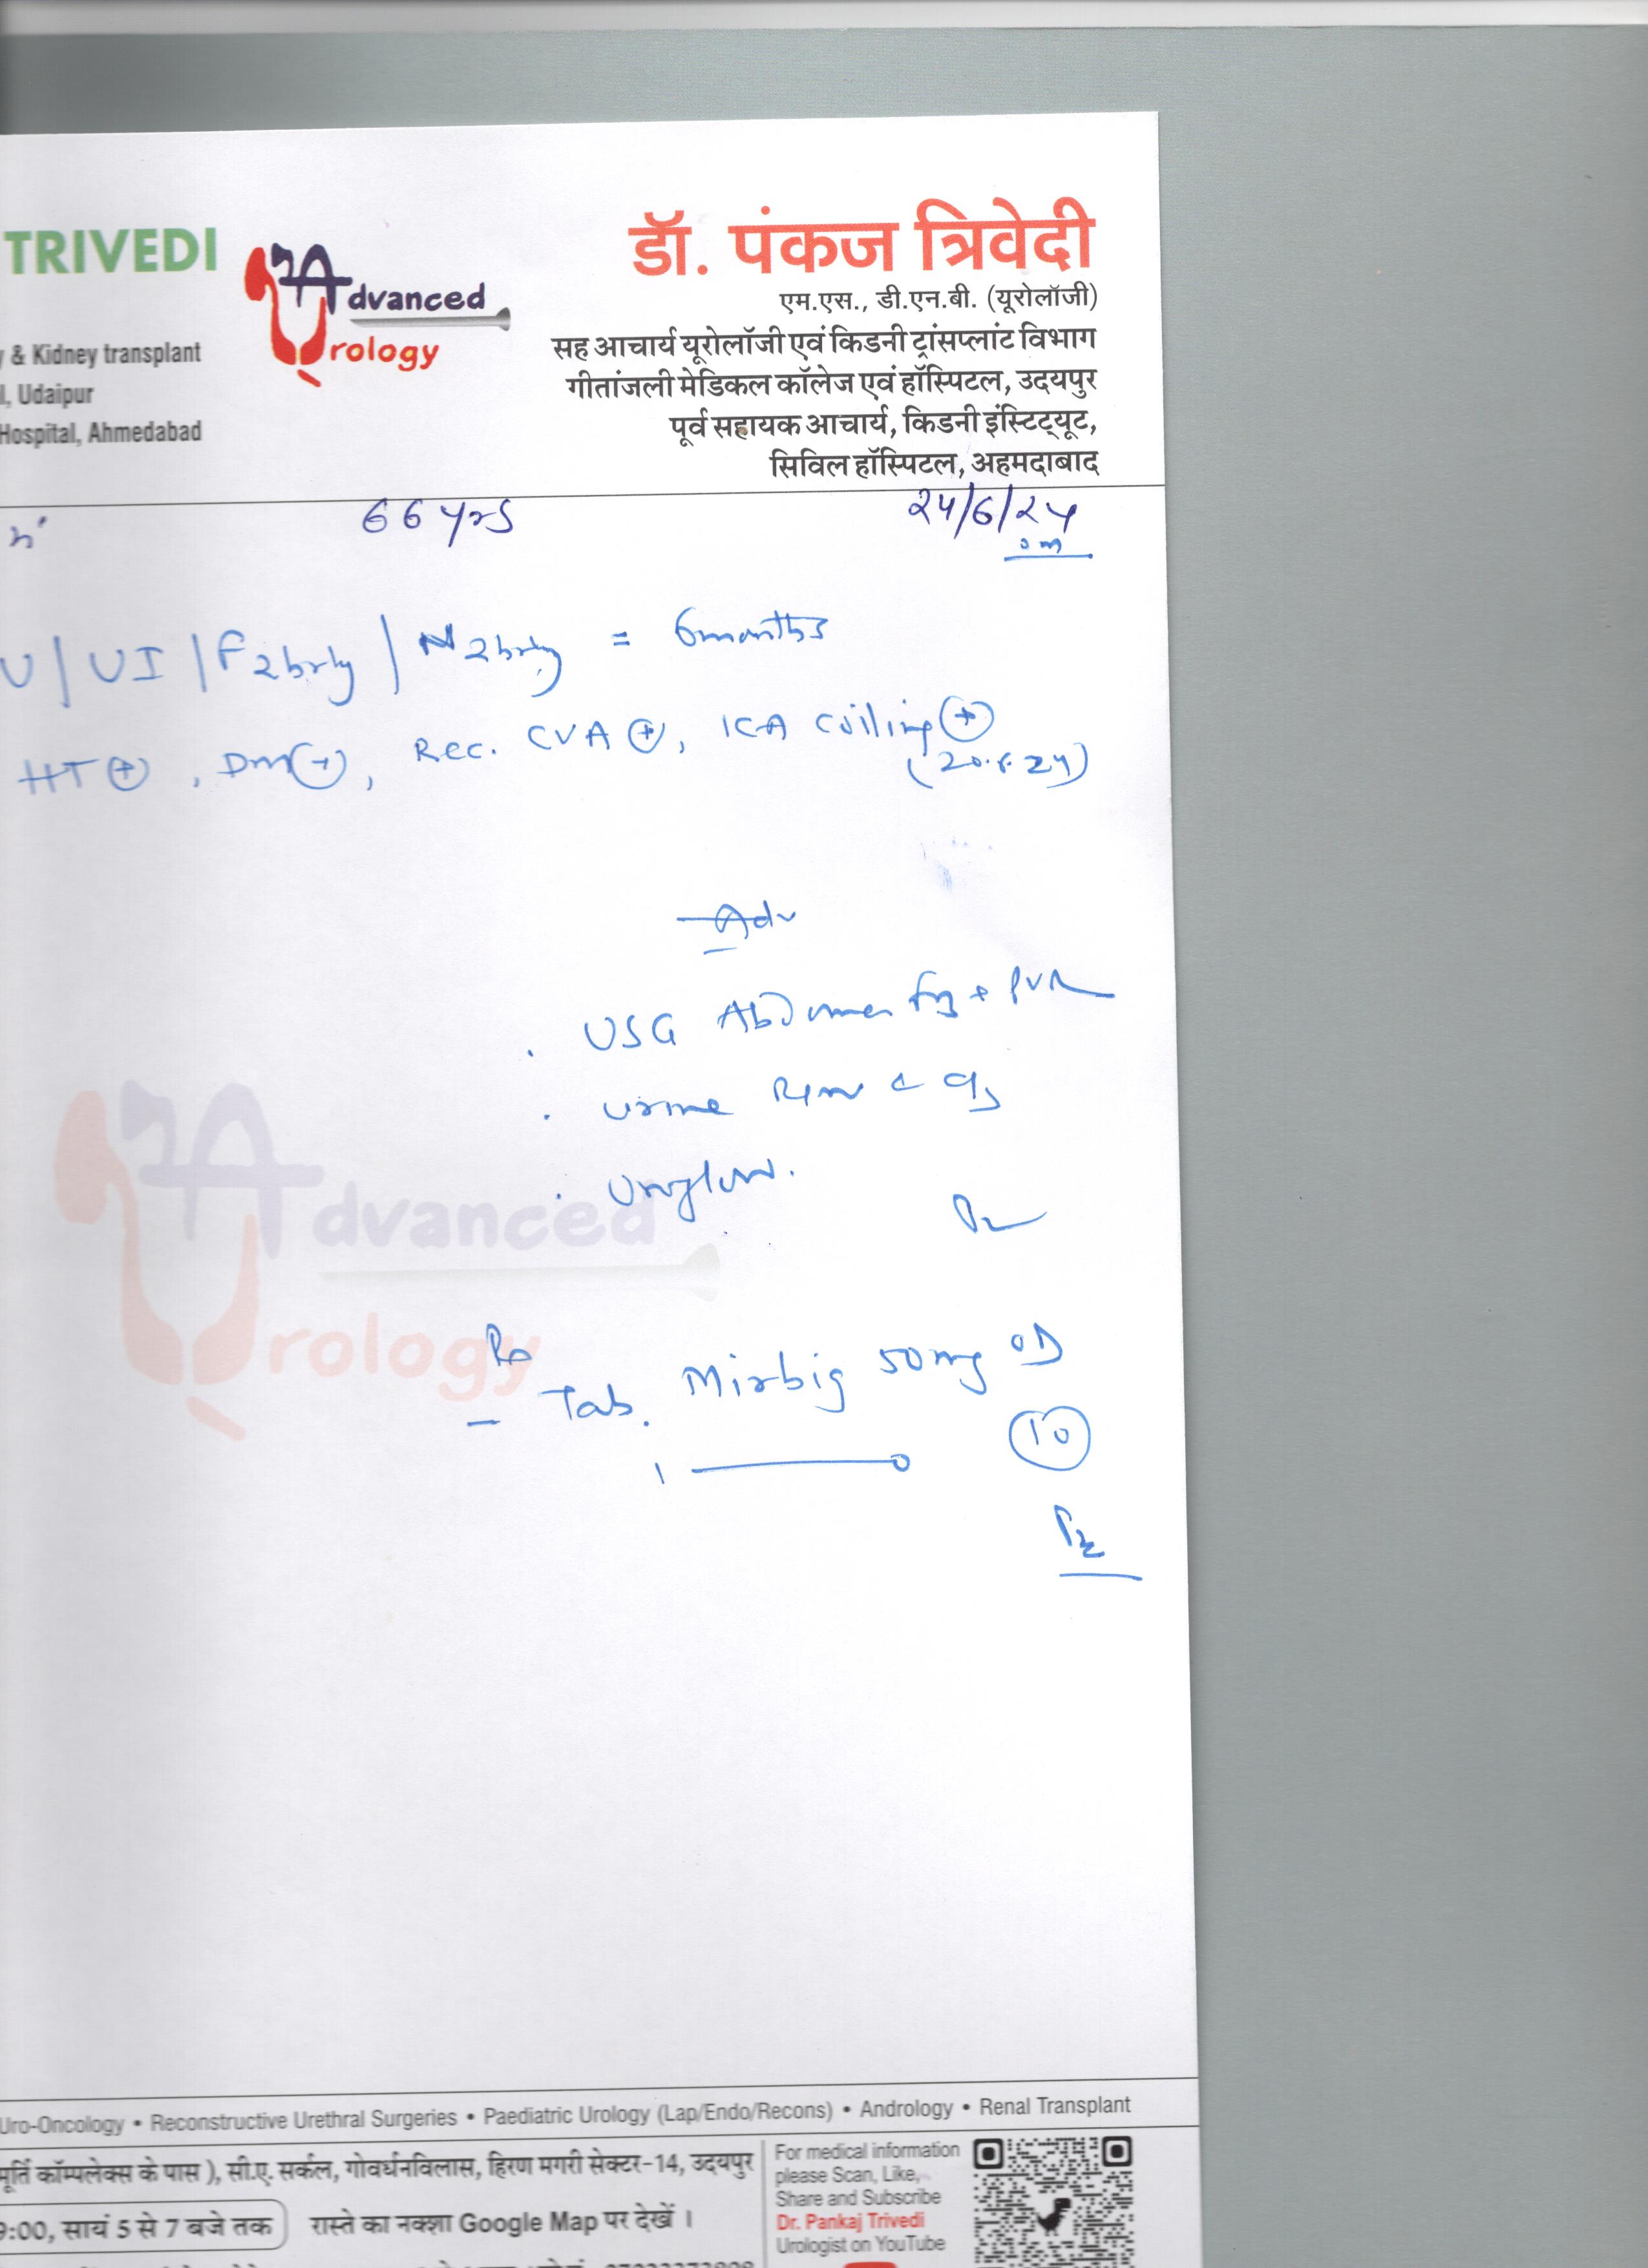 TRIVEDI
Advanced
Urology
& Kidney transplant
Udaipur
Hospital, Ahmedabad
डॉ. पंकज त्रिवेदी
एम.एस., डी.एन.बी. (यूरोलॉजी)
सह आचार्य यूरोलॉजी एवं किडनी ट्रांसप्लांट विभाग
गीतांजली मेडिकल कॉलेज एवं हॉस्पिटल, उदयपुर
पूर्व सहायक आचार्य, किडनी इंस्टिट्यूट,
सिविल हॉस्पिटल, अहमदाबाद
66 yrs 24/6/24
U | UI | F 2hrly | N 2hrly = 6 months
HT ⊕, Dm ⊕, Rec. CVA ⊕, ICA Coiling ⊕
Adv
. USG Abdomen + PVR
. Urine
Advanced
Urology
Tab. Mirbig 50 mg OD
1 —— 0 10
Uro-Oncology • Reconstructive Urethral Surgeries • Paediatric Urology (Lap/Endo/Recons) • Andrology • Renal Transplant
मूर्ति कॉम्पलेक्स के पास ), सी.ए. सर्कल, गोवर्धनविलास, हिरण मगरी सेक्टर-14, उदयपुर
9:00, सायं 5 से 7 बजे तक रास्ते का नक्शा Google Map पर देखें ।
For medical information
please Scan, Like,
Share and Subscribe
Dr. Pankaj Trivedi
Urologist on YouTube